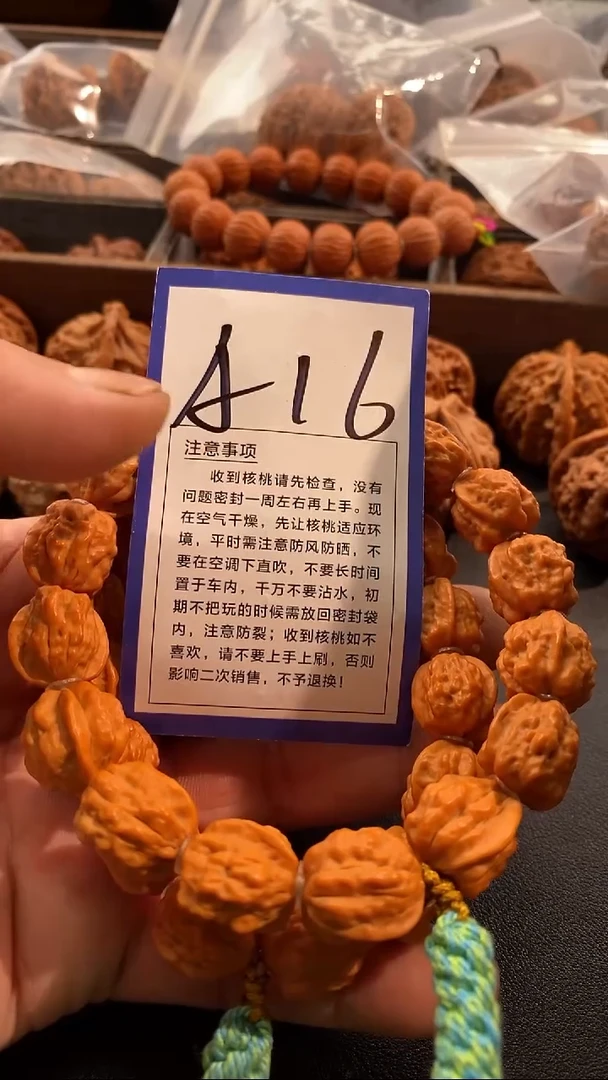 A16
注意事项
收到核桃请先检查，没有
问题密封一周左右再上手。现
在空气干燥，先让核桃适应环
境，平时需注意防风防晒，不
要在空调下直吹，不要长时间
置于车内，千万不要沾水，初
期不把玩的时候需放回密封袋
内，注意防裂；收到核桃如不
喜欢，请不要上手上刷，否则
影响二次销售，不予退换！